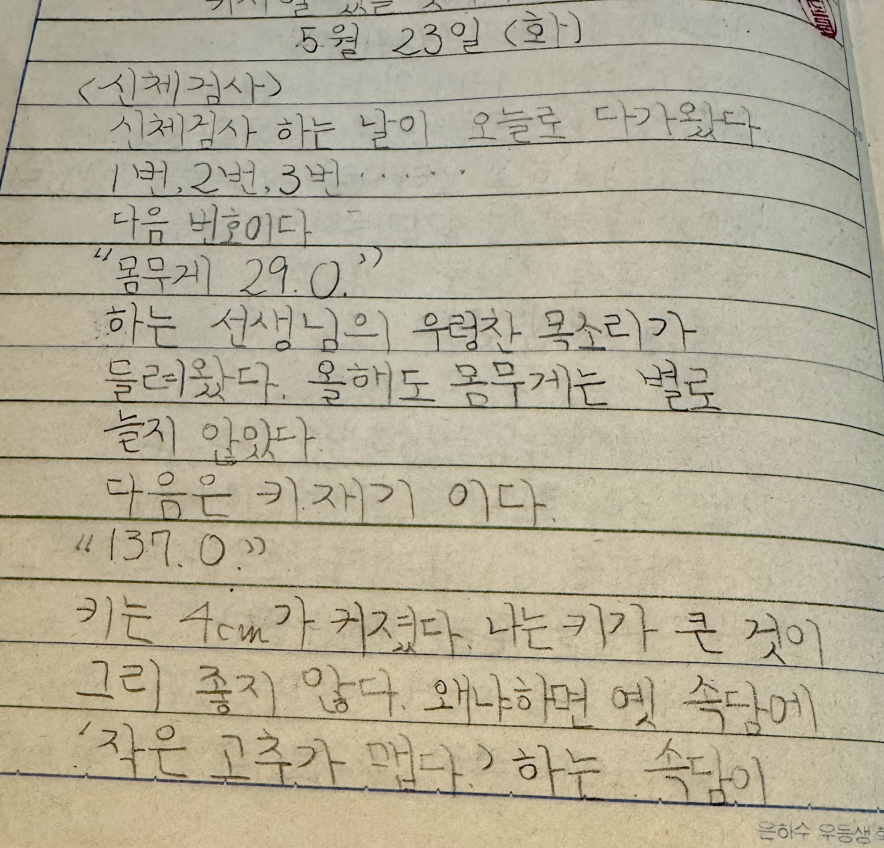 5월 23일 (화)
<신체검사>
신체검사 하는 날이 오늘로 다가왔다
1번, 2번, 3번······
다음 번호이다
"몸무게 29.0."
하는 선생님의 우렁찬 목소리가
들려왔다. 올해도 몸무게는 별로
늘지 않았다.
다음은 키재기 이다.
"137.0."
키는 4cm가 커졌다. 나는 키가 큰 것이
그리 좋지 않다. 왜냐하면 옛 속담에
'작은 고추가 맵다.' 하는 속담이
은하수 우등생